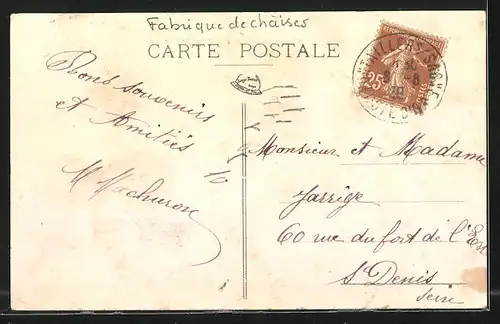 Fabrique de chaises
CARTE POSTALE
Bons souvenirs
et Amitiés
25
Monsieur et Madame
Jarrige
60 rue du fort de l'Est
St Denis
Seine